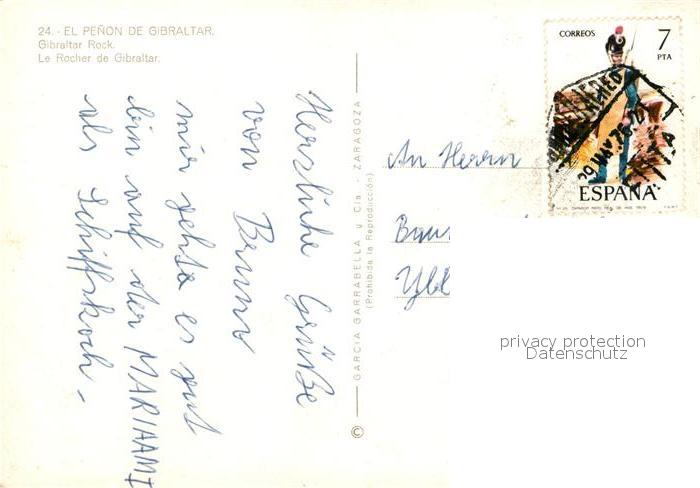 24.- EL PEÑON DE GIBRALTAR.
Gibraltar Rock.
Le Rocher de Gibraltar.
Herzliche Grüße
von Bruno
mir gehts es gut
bin auf der MARIAAMI
als Schiffskoch -
GARCIA GARRABELLA y Cía. - ZARAGOZA
(Prohibida la Reproducción)
©
CORREOS
7
PTA
ESPAÑA
An Herrn
privacy protection
Datenschutz